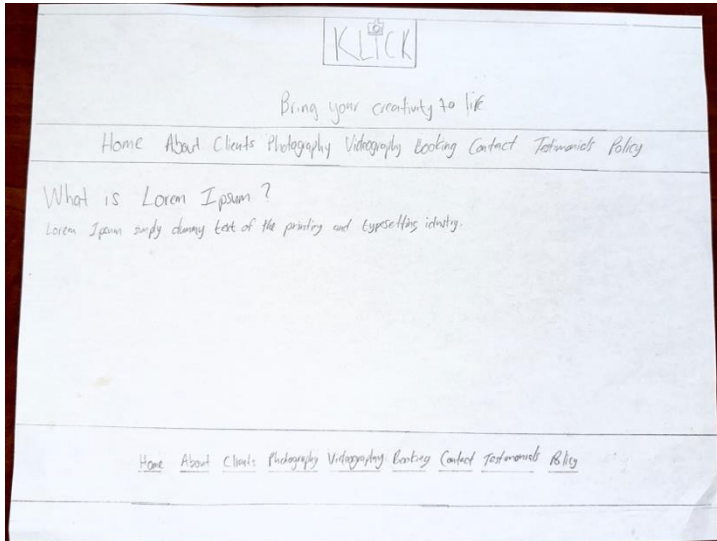 KLICK
Bring your creativity to life
Home About Clients Photography Videography Booking Contact Testimonials Policy
What is Lorem Ipsum?
Lorem Ipsum simply dummy text of the printing and typesetting
Home About Clients Photography Videography Booking Contact Testimonials Policy